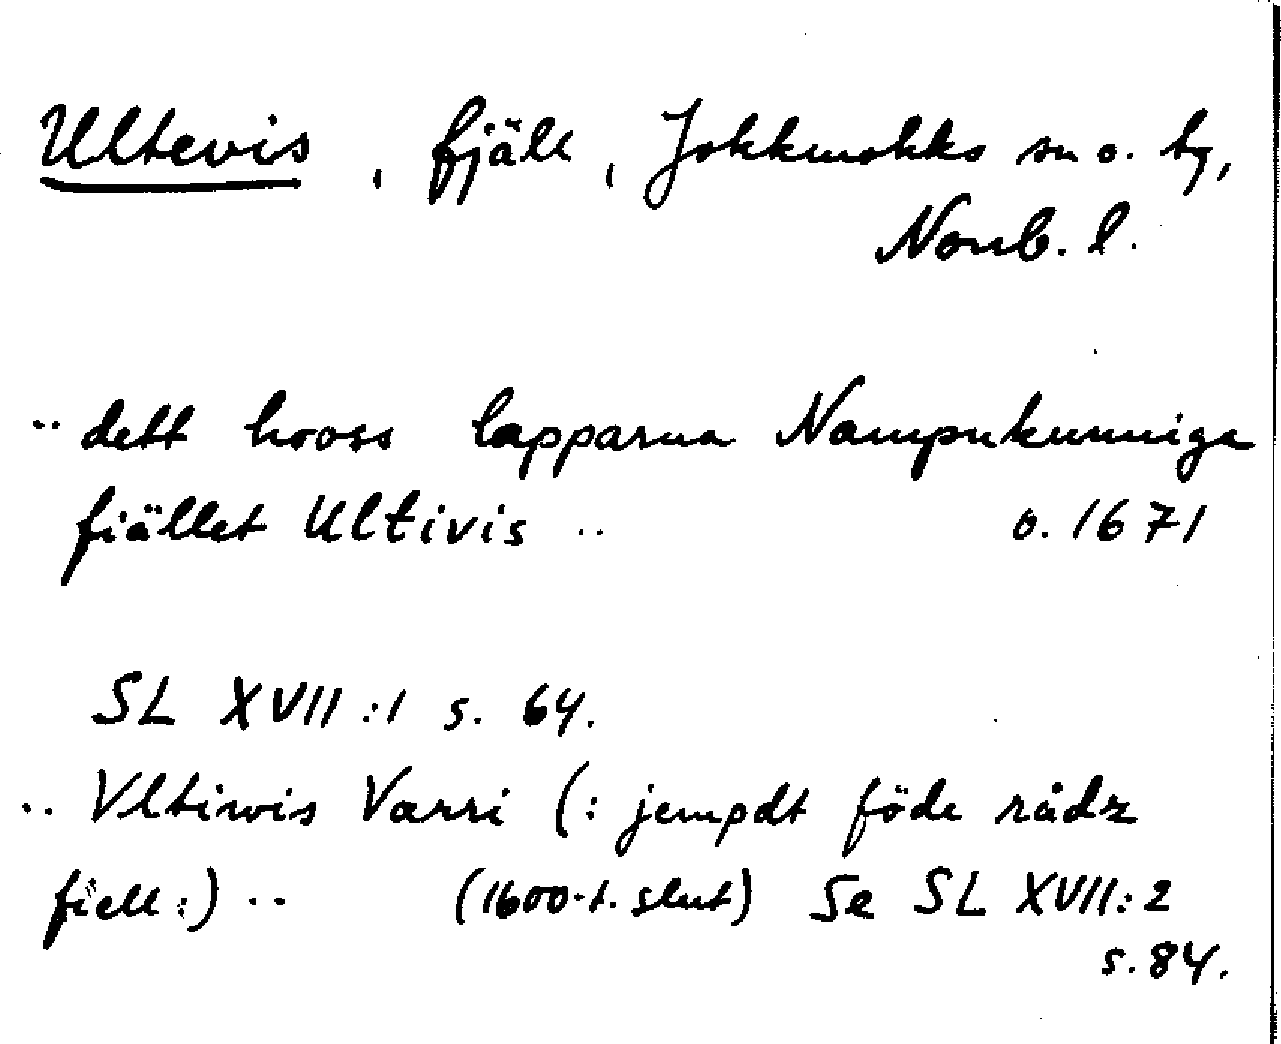 Ultevis, fjäll, Jokkmokks sn o. by,
Norrb. l.
.. dett hooss lapparna Nampnkunniga
fiället Ultivis .. o. 1671
SL XVII:1 s. 64.
.. Vltiwis Varri (: jempdt föde rådz
fiell :) .. (1600-t. slut) Se SL XVII:2
s. 84.